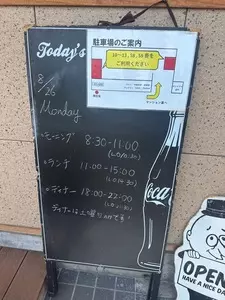 Today's
駐車場のご案内
10~11,18,19番を
ご利用ください
8/26
Monday
モーニング 8:30-11:00
(LO10:30)
ランチ 11:00-15:00
(LO14:30)
ディナー 18:00-22:00
ディナーは土曜日のみです!
Coca
OPEN
HAVE A NICE DAY